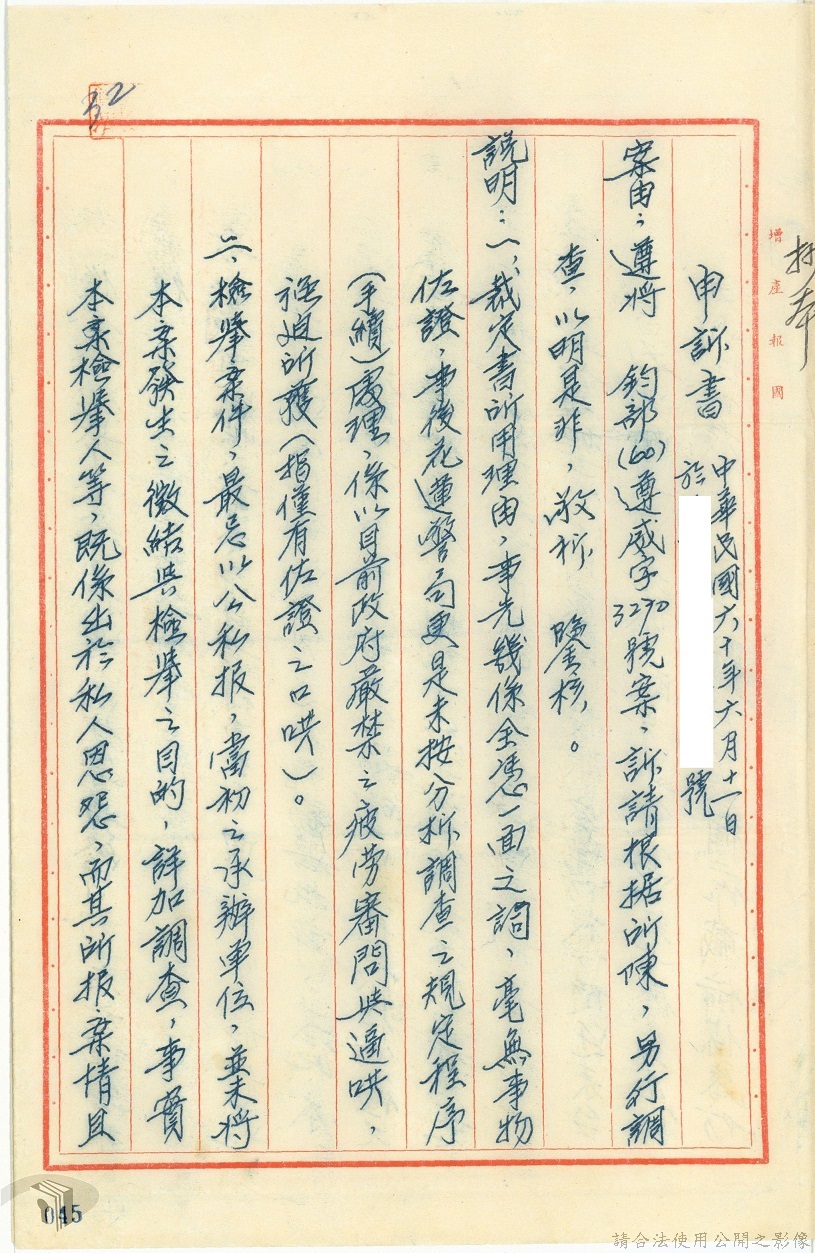 抄本
增產報國
申訴書 中華民國六十年六月十一日
於 號
案由：遵將 鈞部(60)遵威字3270號案，訴請根据所陳，另行調
查，以明是非，敬祈 鑒核。
說明：一、裁定書所用理由，事先幾係全憑一面之詞，毫無事物
佐證，事後花蓮警局更是未按分析調查之規定程序
(手續)處理，係以目前政府嚴禁之疲勞審問與逼哄，
強迫所獲(指僅有佐證之口哄)。
二、檢舉案件，最忌以公私报，當初之承辦單位，並未將
本案發生之徵結與檢舉之目的，詳加調查，事實
本案檢舉人等，既係出於私人恩怨，而其所报案情且
32
045
請合法使用公開之影像